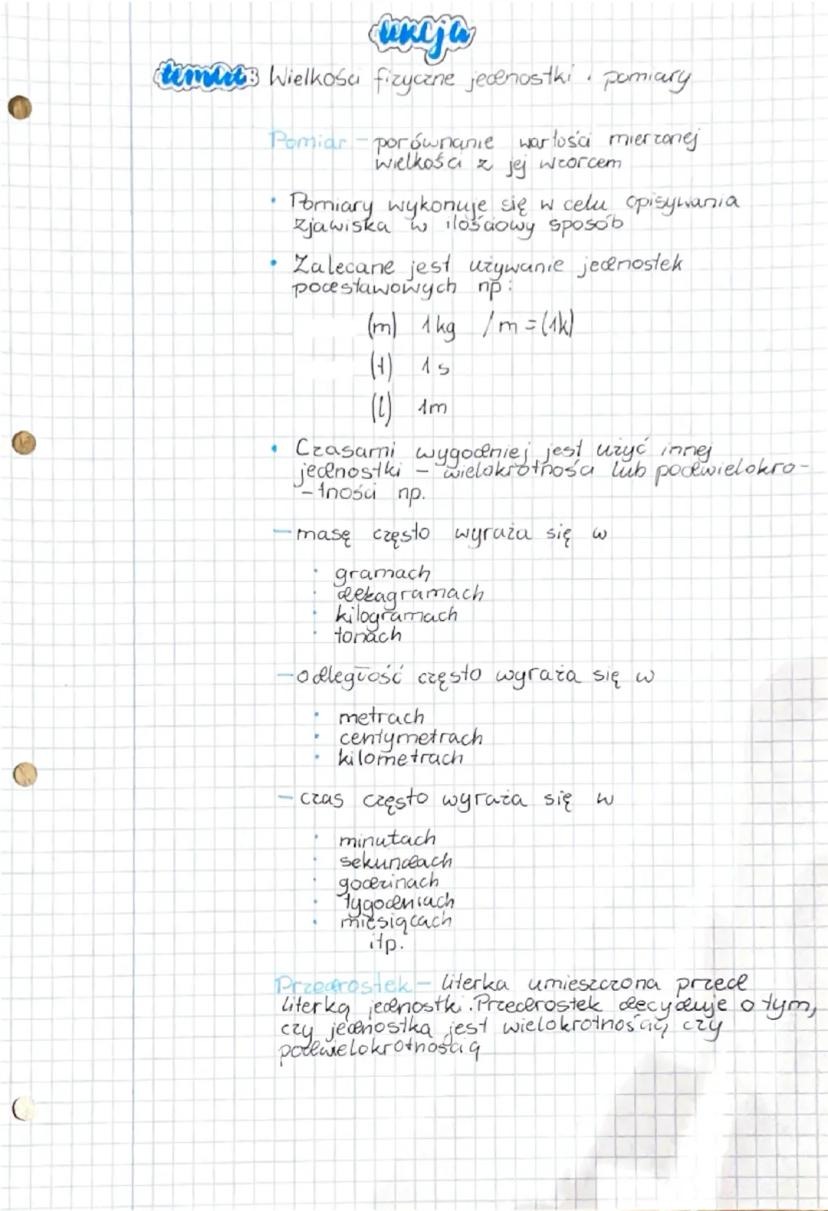 lekcja
temat: Wielkości fizyczne jednostki i pomiary
Pomiar - porównanie wartości mierzonej
wielkości z jej wzorcem
• Pomiary wykonuje się w celu opisywania
zjawiska w ilościowy sposób
• Zalecane jest używanie jednostek
podstawowych np:
(m) 1kg /m=(1k)
(t) 1s
(l) 1m
• Czasami wygodniej jest użyć innej
jednostki - wielokrotności lub podwielokro-
-tności np.
- masę często wyraża się w
• gramach
• dekagramach
• kilogramach
• tonach
- odległość często wyraża się w
• metrach
• centymetrach
• kilometrach
- czas często wyraża się w
• minutach
• sekundach
• godzinach
• tygodniach
• miesiącach
itp.
Przedrostek - literka umieszczona przed
literką jednostki. Przedrostek decyduje o tym,
czy jednostka jest wielokrotnością, czy
podwielokrotnością